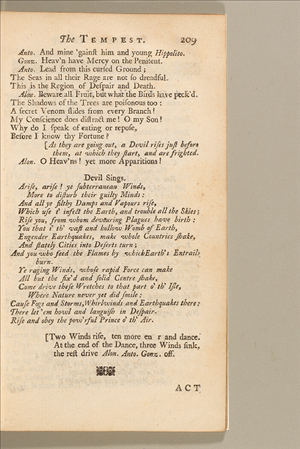 The TEMPEST. 209
Anto. And mine 'gainst him and young Hippolito.
Gonz. Heav'n have Mercy on the Penitent.
Anto. Lead from this cursed Ground;
The Seas in all their Rage are not so dreadful.
This is the Region of Despair and Death.
Alon. Beware all Fruit, but what the Birds have peck'd.
The Shadows of the Trees are poisonous too:
A secret Venom slides from every Branch!
My Conscience does distract me! O my Son!
Why do I speak of eating or repose,
Before I know thy Fortune?
[As they are going out, a Devil rises just before
them, at which they start, and are frighted.
Alon. O Heav'ns! yet more Apparitions!
Devil Sings.
Arise, arise! ye subterranean Winds,
More to disturb their guilty Minds:
And all ye filthy Damps and Vapours rise,
Which use t' infect the Earth, and trouble all the Skies;
Rise you, from whom devouring Plagues have birth:
You that i' th' vast and hollow Womb of Earth,
Engender Earthquakes, make whole Countries shake,
And stately Cities into Deserts turn;
And you who feed the Flames by which Earth's Entrails
burn.
Ye raging Winds, whose rapid Force can make
All but the fix'd and solid Centre shake,
Come drive these Wretches to that part o' th' Isle,
Where Nature never yet did smile:
Cause Fogs and Storms, Whirlwinds and Earthquakes there:
There let 'em howl and languish in Despair.
Rise and obey the pow'rful Prince o' th' Air.
[Two Winds rise, ten more en r and dance.
At the end of the Dance, three Winds sink,
the rest drive Alon. Anto. Gonz. off.
ACT